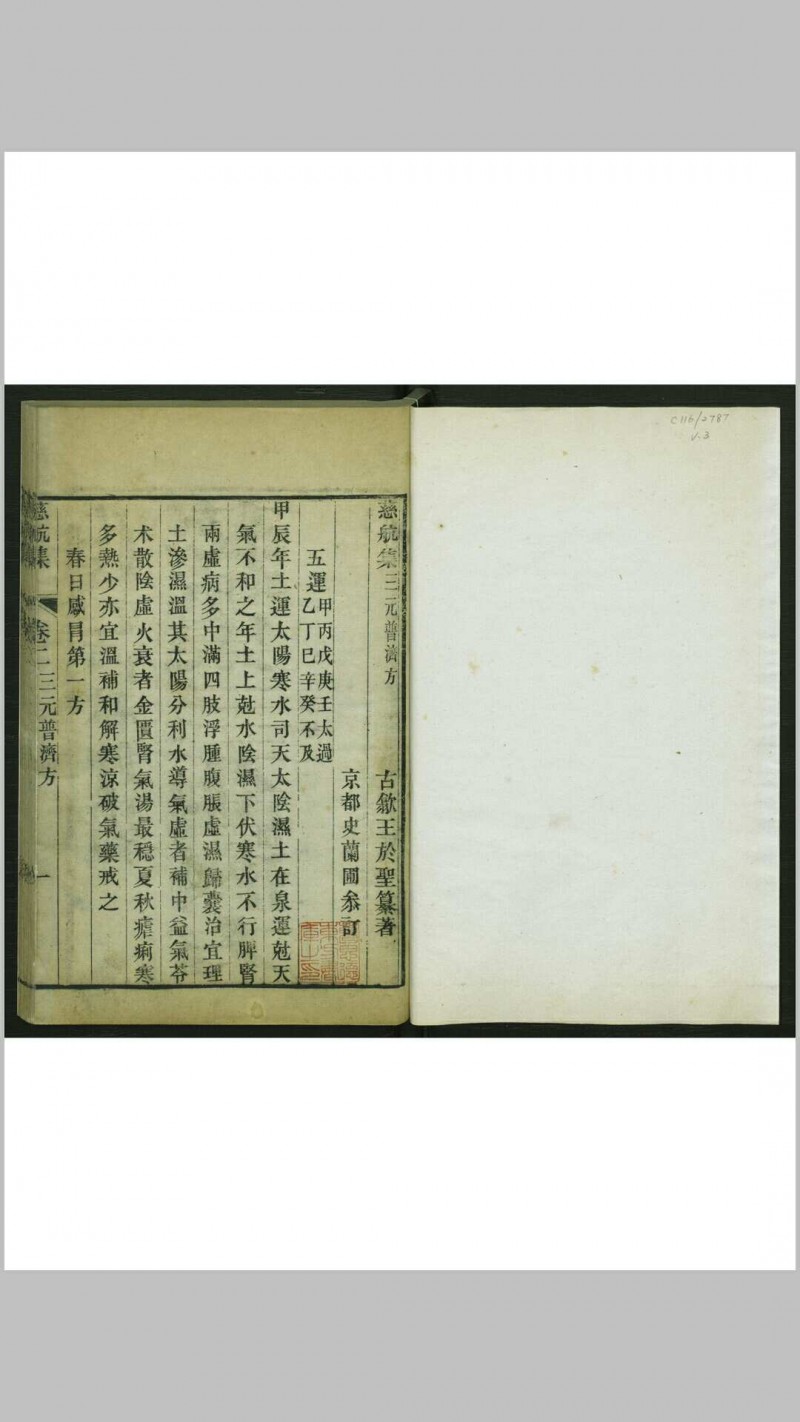 C116/2787
v.3
慈航集三元普濟方
古歙王於聖纂著
京都史蘭圃叅訂
五運甲丙戊庚壬太過
乙丁巳辛癸不及
甲辰年土運太陽寒水司天太陰濕土在泉運尅天
氣不和之年土上尅水陰濕下伏寒水不行脾腎
兩虛病多中滿四肢浮腫腹脹虛濕歸囊治宜理
土滲濕溫其太陽分利水導氣虛者補中益氣苓
术散陰虛火衰者金匱腎氣湯最穩夏秋瘧痢寒
多熱少亦宜溫補和解寒涼破氣藥戒之
春日感冒第一方
慈航集
卷二三元普濟方
一